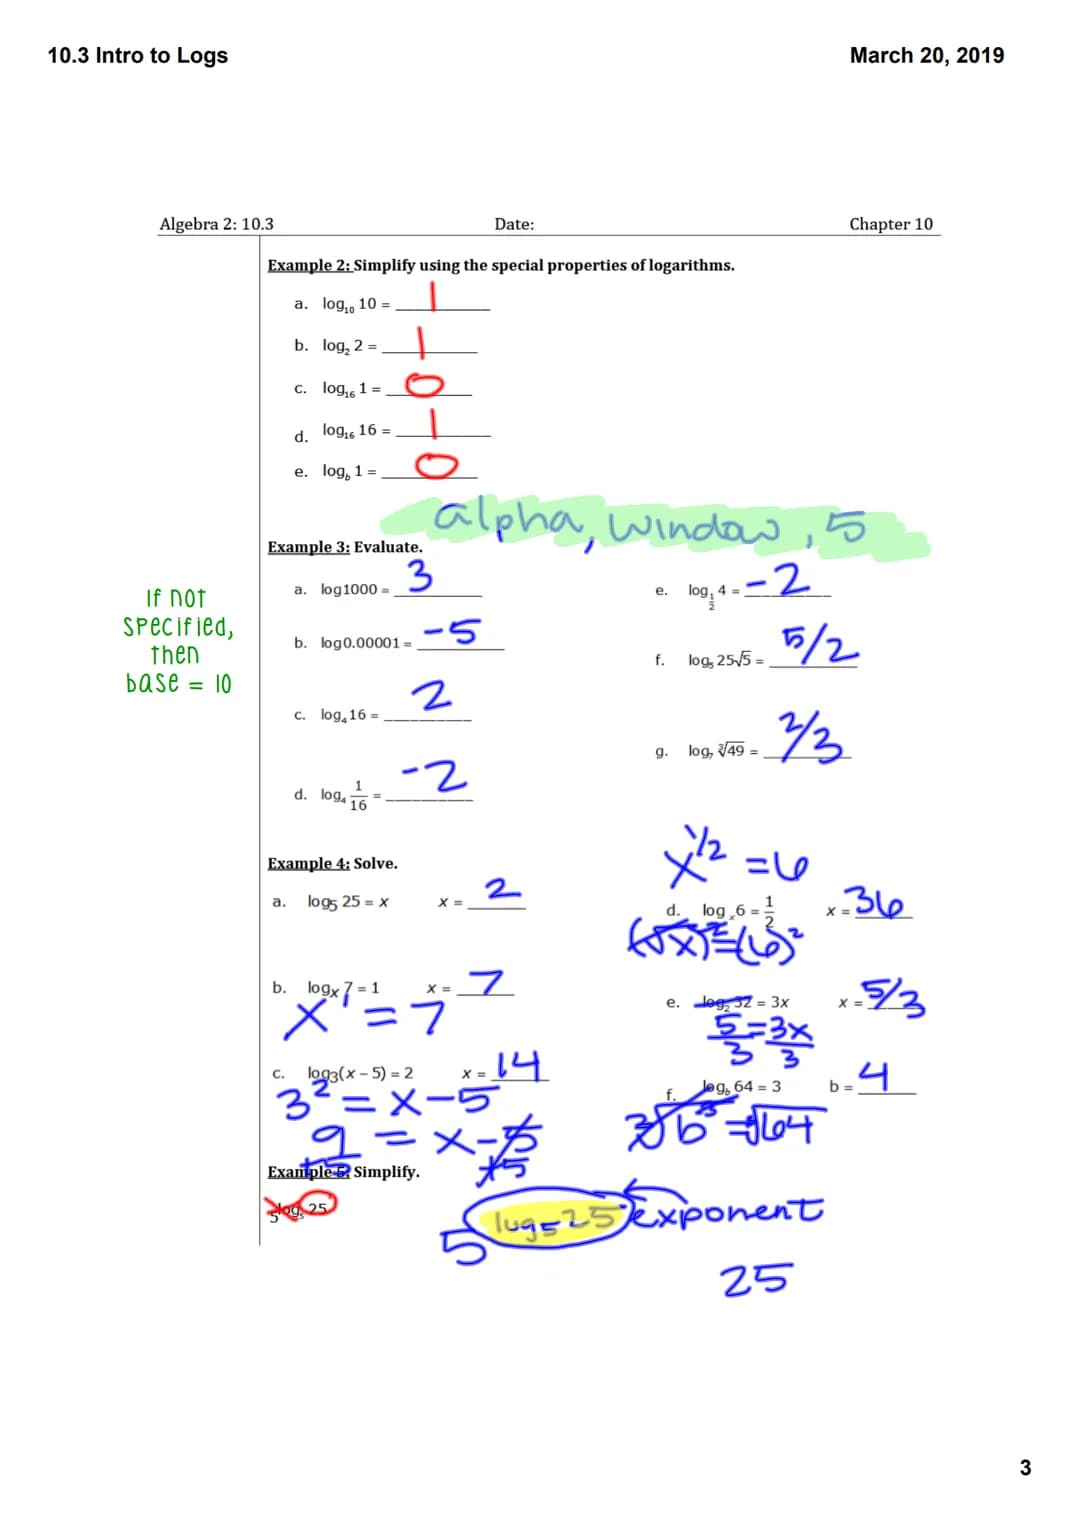 10.3 Intro to Logs March 20, 2019
Algebra 2: 10.3 Date: Chapter 10
Example 2: Simplify using the special properties of logarithms.
a. log₁₀ 10 = 1
b. log₂ 2 = 1
c. log₁₆ 1 = 0
d. log₁₆ 16 = 1
e. log_b 1 = 0
alpha, window, 5
Example 3: Evaluate.
If not
specified,
then
base = 10
a. log1000 = 3
b. log0.00001 = -5
c. log₄ 16 = 2
d. log₄ 1/16 = -2
e. log_1/2 4 = -2
f. log₅ 25√5 = 5/2
g. log₇ ∛49 = 2/3
Example 4: Solve.
a. log5 25 = x x = 2
b. logx 7 = 1 x = 7
x¹ = 7
c. log3(x – 5) = 2 x = 14
3² = x-5
9 = x-5
+5 +5
x^1/2 = 6
d. log_x 6 = 1/2 x = 36
(√x)² = (6)²
e. log₂ 32 = 3x x = 5/3
5/3 = 3x/3
f. log_b 64 = 3 b = 4
∛b³ = ∛64
Example 5: Simplify.
5^log₅ 25
5^log5 25 exponent
25
3